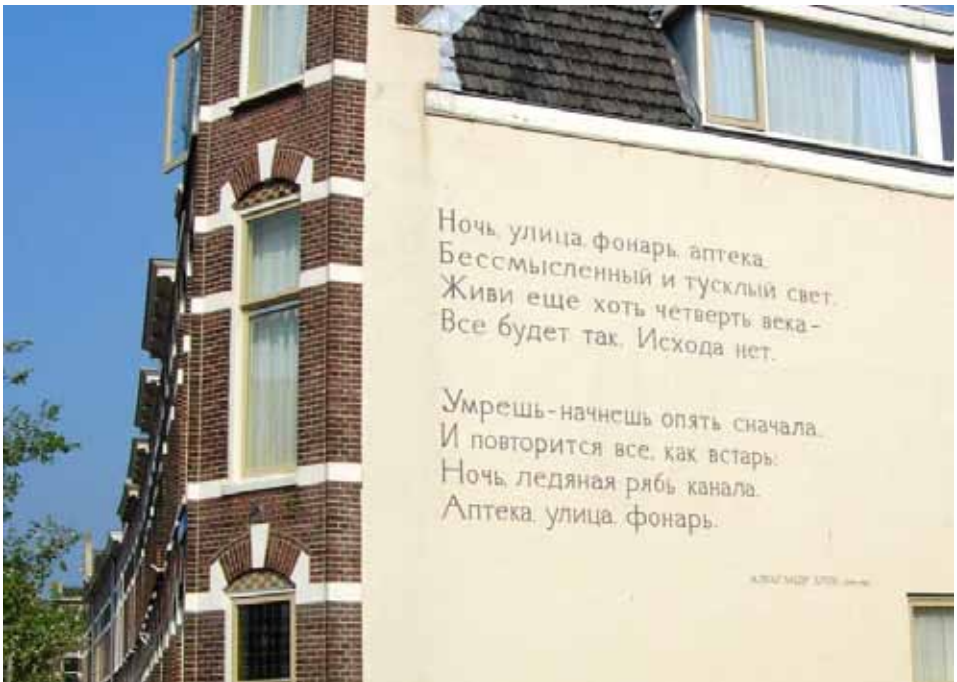 Ночь, улица, фонарь, аптека,
Бессмысленный и тусклый свет.
Живи еще хоть четверть века-
Все будет так. Исхода нет.
Умрешь-начнешь опять сначала,
И повторится все, как встарь:
Ночь, ледяная рябь канала,
Аптека, улица, фонарь.
АЛЕКСАНДР БЛОК